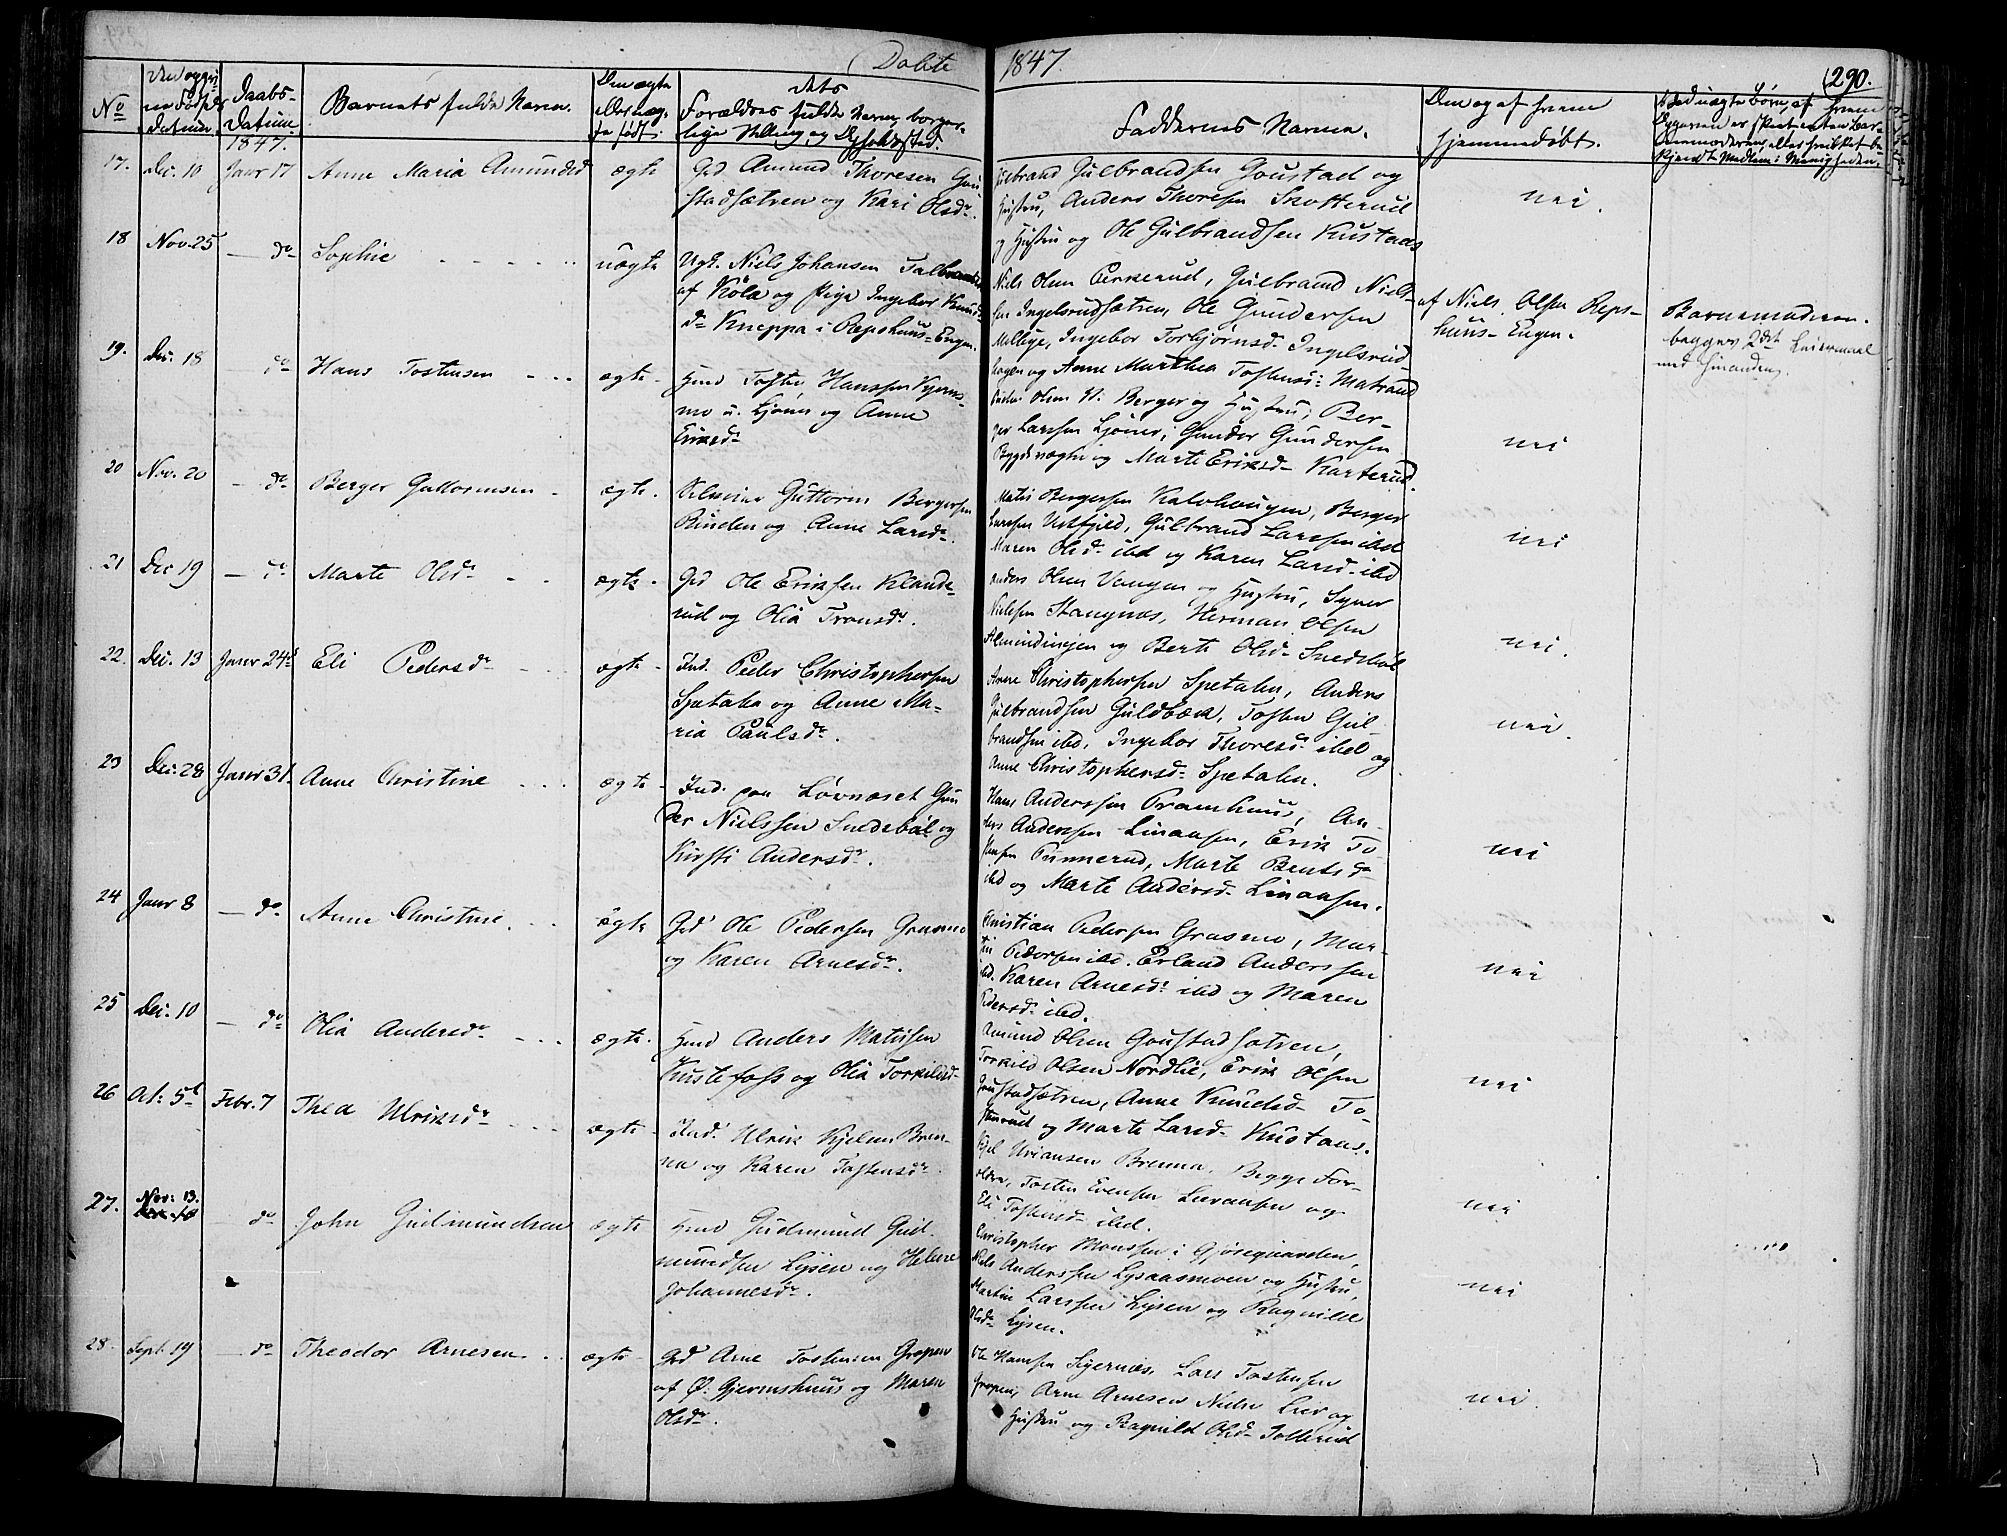 Døbte 1847.
290.
No
Daabs-
Datum
1847.
Barnets fulde Navn.
Den ægte
dets
Forældres fulde Navn, borger-
Faddernes Navne.
Den og af hvem
hjemmedøbt.
17. Dec. 10 Janr 17 Anne Maria Amundsd ægte Gd Amund Thoresen
stadsætren og Kari Olsdr.
Gulbrand Gulbrandsen Goustad og
Hustru, Anders Thoresen Snotterud
og Hustru og Ole Gulbrandsen Kustaas
nei.
18 Nov. 25 — do Sophie uægte Ugk. Niels Johansen
af Köla og Pige Ingebor Knuds
dr Kneppa i Repshuus-Engen.
Niels Olsen Pennerud, Gulbrand Niels-
sen Ingelsrudsætren, Ole Gundersen
Melbye, Ingebor Torbjørnsd. Ingelsrud-
hagen og Anne Marthea Tostensd: Matrand
af Niels Olsen Reps-
huus-Engen.
Barnemoderen.
begges 2det Leiermaal
med hinanden.
19. Dec. 18 do Hans Tostensen ægte Hmd Tosten Hanssen
mo u. Ljøner og Anne
Eriksdr
Olsen N: Berger og Hustru, Ber-
ger Larssen Ljøner, Gunder Gundersen
og Marte Eriksd- Karterud.
nei
20 Nov. 20 — do Berger Guttormsen ægte. Guttorm Bergersen
Runden og Anne Larsdr.
Bergersen Kalvhougen, Berger
Larssen Vestfjeld, Gulbrand Larssen ibd
Maren Olsdr ibd og Karen Larsd- ibd
nei
21 Dec 19 — do Marte Olsdr ægte. Gd Ole Eriksen Klande-
rud og Olia Tronsdr.
Anders Olsen Vangen og Hustru, Syver
Nielsen Stangnæs, Herman Olsen
Almindingen og Berte Olsd- Snedsböl
nei.
22. Dec. 13 Janr 24de Eli Pedersdr ægte Ind. Peder Christophersen
Spetalen og Anne Ma-
ria Paulsdr.
Arne Christophersen Spetalen, Anders
Gulbrandsen Guldbæk, Tosten Gul-
brandsen ibd, Ingebor Thoresdr ibd og
Anne Christophersd- Spetalen.
nei.
23 Dec: 28 Janr 31. Anne Christine ægte Ind. paa Løvnæset Gun
der Nielssen Snedsböl og
Kirsti Andersdr.
Hans Anderssen Pramhuus, An-
ders Anderssen Linaasen, Erik To-
stensen Punnerud, Marte Bentsdr
ibd og Marte Andersd- Linaasen.
nei
24 Janr 8 — do Anne Christine ægte Gd Ole Pedersen Grasmo
og Karen Arnesdr.
Christian Pedersen Grasmo, Mar-
tin Pedersen ibd. Erland Anderssen
ibd. Karen Arnesdr ibd og Maren
Pedersd- ibd.
nei
25 Dec. 10 — do Olia Andersdr ægte. Hmd Anders Matissen
Kustefoss og Olia Torkildsd-
Amund Olsen Goustadsætren,
Torkild Olsen Nordlie, Erik Olsen
Goustadsætren, Anne Knudsd- To-
stenrud og Marte Larsd- Kustaas.
nei
26 Oct: 5t Febr. 7 Thea Ulriksdr ægte Ind. Ulrik Kjelsen Bren-
na og Karen Tostensdr.
Kjel Brenna. Begge For-
ældre, Tosten Evensen Leeraasen og
Eli Tostensd- ibd.
nei
27. Nov: 13. — do John Gudmundsen ægte Hmd Gudmund Gud-
mundsen Lysen og Helene
Johannesdr.
Christopher Monssen i Gjøsegaarden,
Niels Anderssen Lysaasmoen og Hustru,
Martin Larssen Lysen og Ragnild
Olsdr Lysen.
nei
28. Sept. 19 — do Theodor Arnesen ægte Gd Arne Tostensen Gropen
af Ø: Gjermshuus og Maren
Olsdr.
Ole Hanssen Sigernæs, Lars Tostensen
Gropen, Arne Arnesen Nedre Leer og
Hustru og Ragnild Olsd- Tollerud
nei.